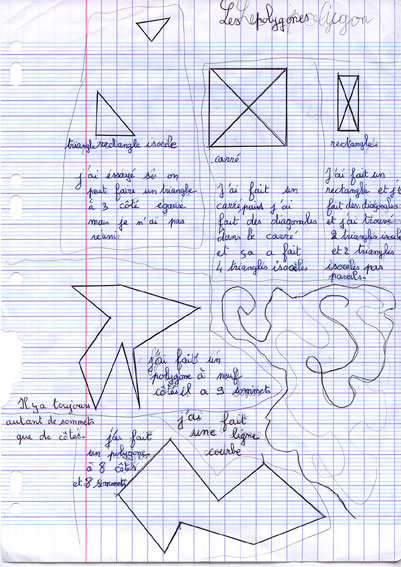 Les polygones
triangle rectangle isocèle
carré
rectangle
j'ai éssayé si on
peut faire un triangle
à 3 côté égaux
mais je n'ai pas
réussi
J'ai fait un
carré puis j'ai
fait des diagonales
dans le carré
et ça a fait
4 triangles isocèles
J'ai fait un
rectangle et j'ai
fait des diagonales
et j'ai trouvé
2 triangles isocèles
et 2 triangles
isocèles pas
pareils.
j'ai fait un
polygone à neuf
côtés il a 9 sommets
Il y a toujours
autant de sommets
que de côtés.
j'ai fait
une ligne
courbe
j'ai fait
un polygone
à 8 côtés
et 8 sommets